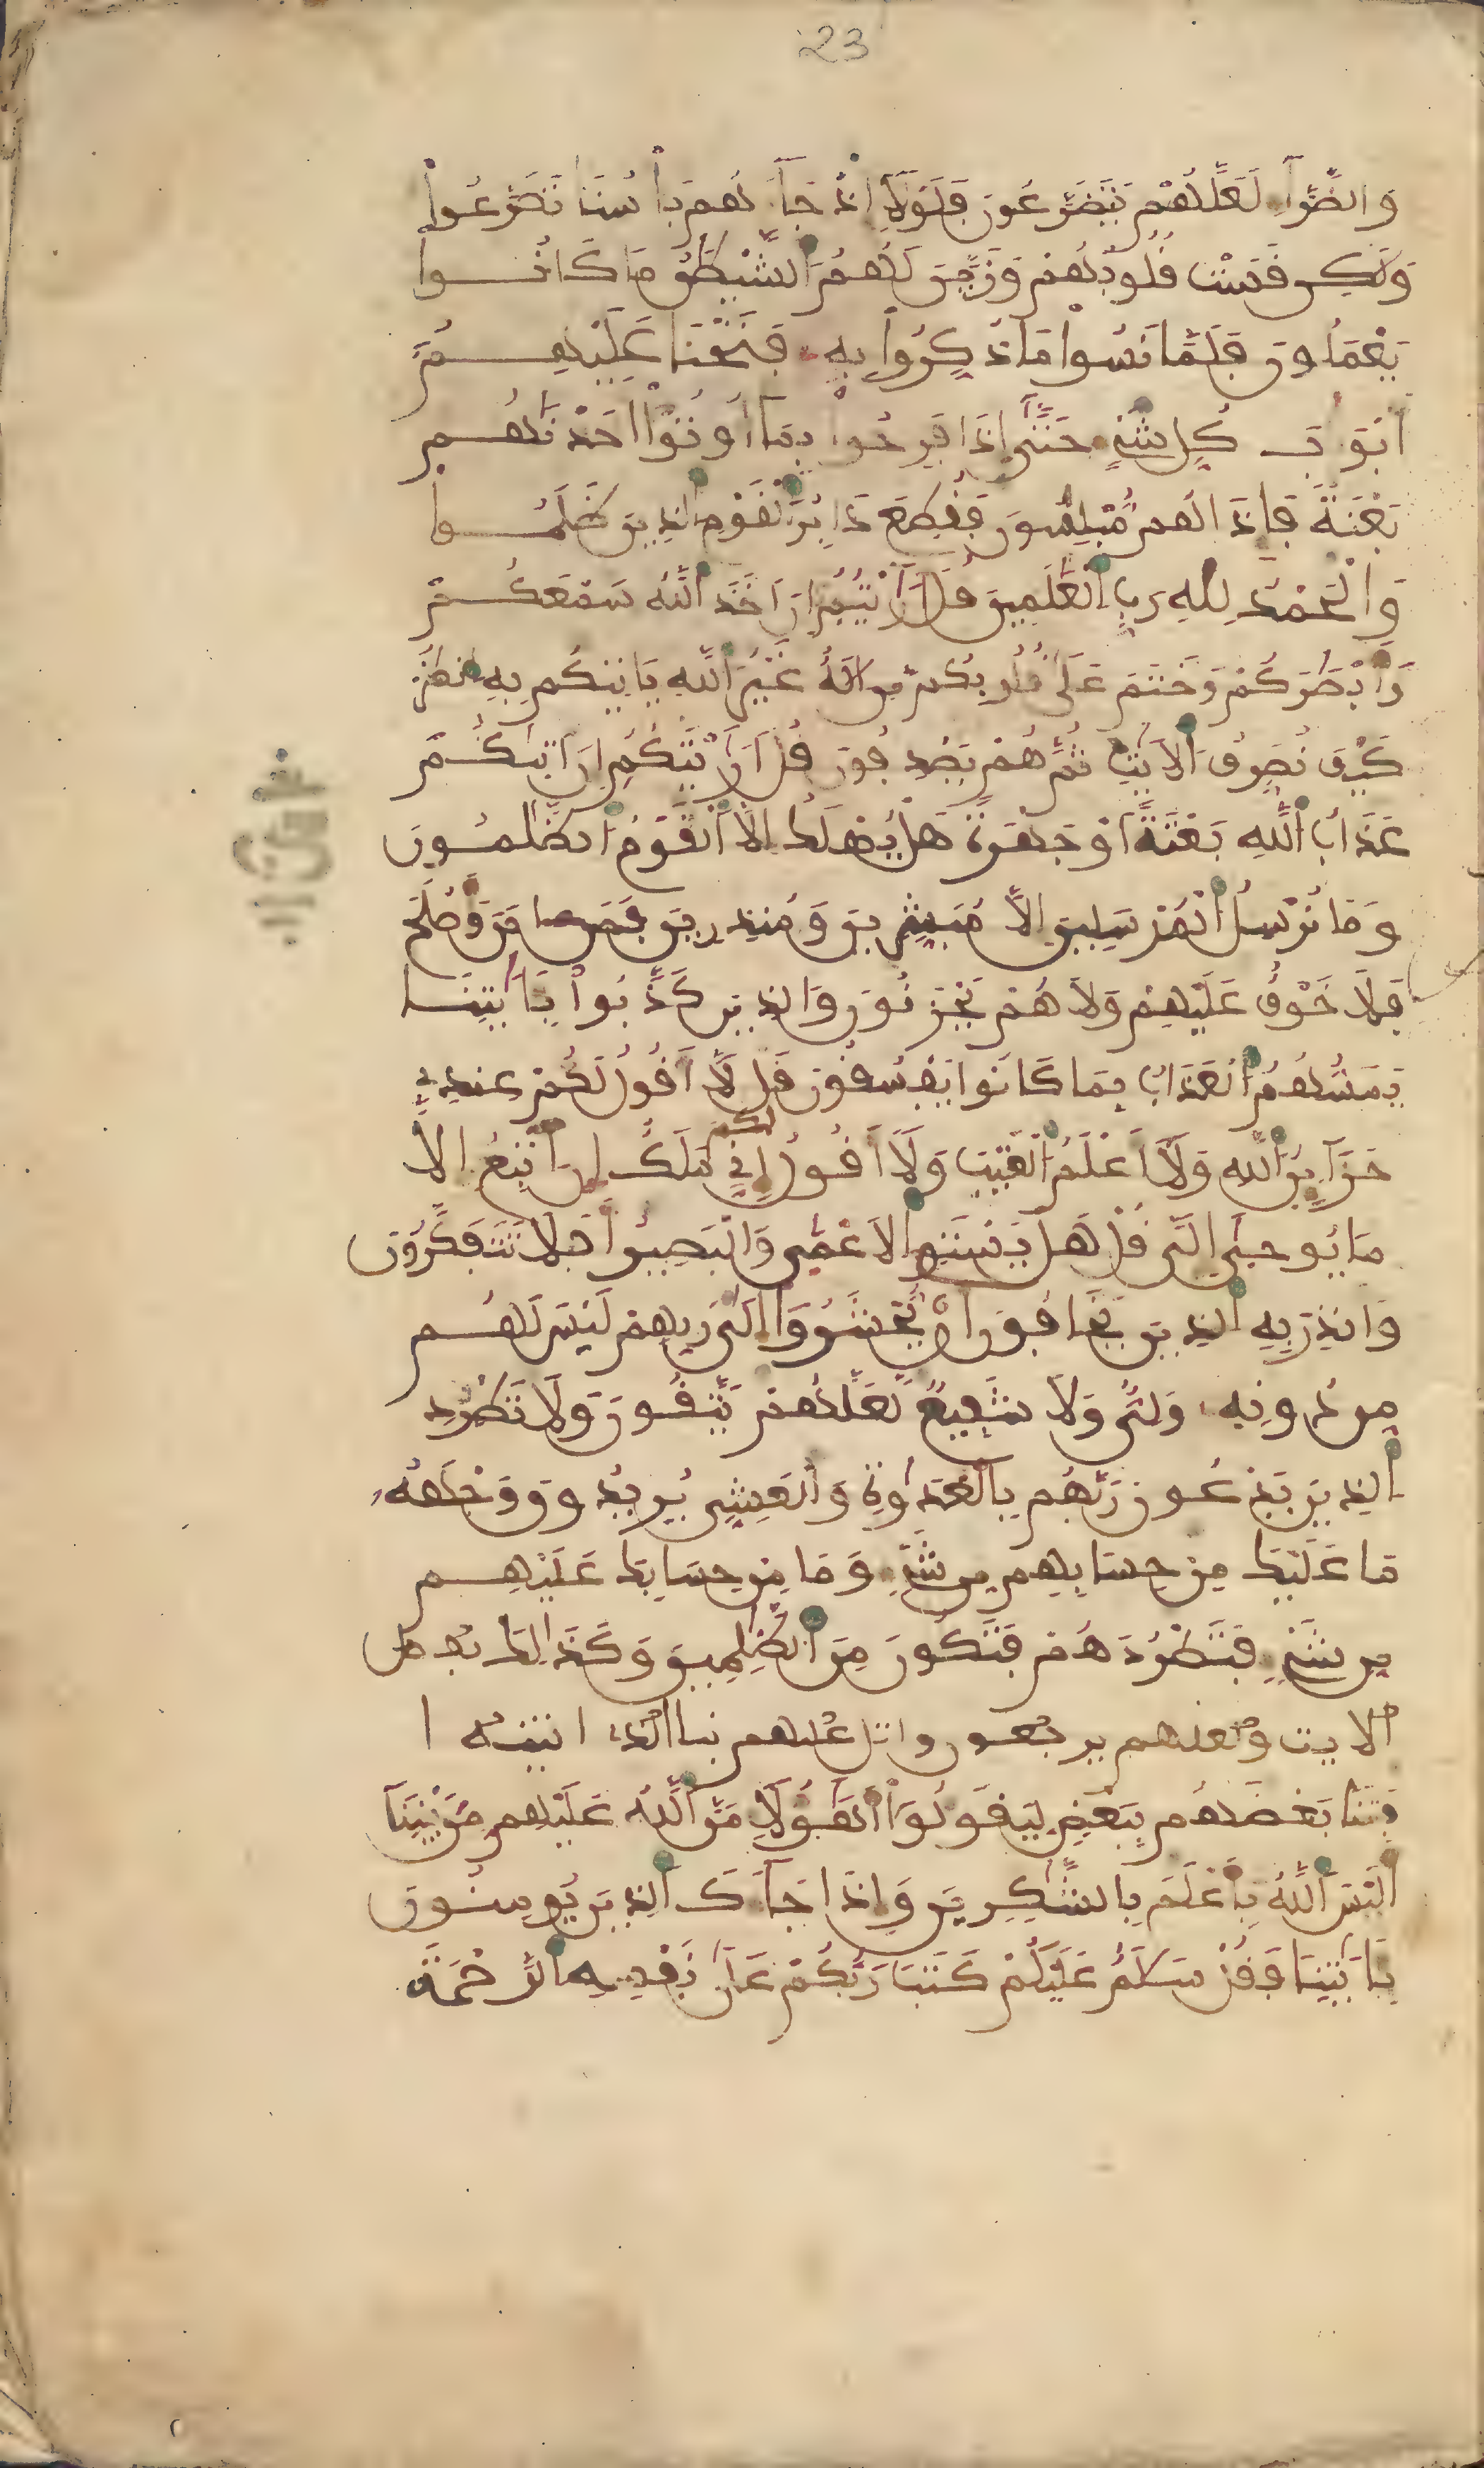 23
وَالضَّرَّآءِ لَعَلَّهُمْ يَتَضَرَّعُونَ فَلَوْلَآ إِذْ جَآءَهُم بَأْسُنَا تَضَرَّعُواْ
وَلَٰكِن قَسَتْ قُلُوبُهُمْ وَزَيَّنَ لَهُمُ الشَّيْطَٰنُ مَا كَانُواْ
يَعْمَلُونَ فَلَمَّا نَسُواْ مَا ذُكِّرُواْ بِهِ فَتَحْنَا عَلَيْهِمُۥٓ
أَبْوَٰبَ كُلِّ شَيْءٍ حَتَّىٰٓ إِذَا فَرِحُواْ بِمَآ أُوتُوٓاْ أَخَذْنَٰهُم
بَغْتَةً فَإِذَا هُم مُّبْلِسُونَ فَقُطِعَ دَابِرُ الْقَوْمِ الَّذِينَ ظَلَمُواْ
وَالْحَمْدُ لِلهِ رَبِّ الْعَٰلَمِينَ قُلْ أَرَٰيْتُمُۥٓ إِنْ أَخَذَ اللَّهُ سَمْعَكُمْ
وَأَبْصَٰرَكُمْ وَخَتَمَ عَلَىٰ قُلُوبِكُم مَّنْ إِلَٰهٌ غَيْرُ اللَّهِ يَاتِيكُم بِهِ انظُرْ
كَيْفَ نُصَرِّفُ الْأَيَٰتِ ثُمَّ هُمْ يَصْدِفُونَ قُلْ أَرَٰيْتَكُمُۥٓ إِنْ أَتَىٰكُمْ
عَذَابُ اللَّهِ بَغْتَةً أَوْ جَهْرَةً هَلْ يُهْلَكُ إِلَّا الْقَوْمُ الظَّٰلِمُونَ
وَمَا نُرْسِلُ الْمُرْسَلِينَ إِلَّا مُبَشِّرِينَ وَمُنذِرِينَ فَمَنَ ءَامَنَ وَأَصْلَحَ
فَلَا خَوْفٌ عَلَيْهِمْ وَلَا هُمْ يَحْزَنُونَ وَالَّذِينَ كَذَّبُواْ بِـَٔايَٰتِنَا
يَمَسُّهُمُ الْعَذَابُ بِمَا كَانُواْ يَفْسُقُونَ قُل لَّآ أَقُولُ لَكُمْ عِندِي
خَزَآئِنُ اللَّهِ وَلَآ أَعْلَمُ الْغَيْبَ وَلَآ أَقُولُ لكم إِنِّي مَلَكٌ إِنَ أَتَّبِعُ إِلَّا
مَا يُوحَىٰٓ إِلَيَّ قُلْ هَلْ يَسْتَوِي الْأَعْمَىٰ وَالْبَصِيرُ أَفَلَا تَتَفَكَّرُونَ
وَأَنذِرْ بِهِ الَّذِينَ يَخَافُونَ أَنْ يُّحْشَرُوٓاْ إِلَىٰ رَبِّهِمْ لَيْسَ لَهُم
مِّن دُونِهِۦ وَلِيٌّ وَلَا شَفِيعٌ لَّعَلَّهُمْ يَتَّقُونَ وَلَا تَطْرُدِ
الَّذِينَ يَدْعُونَ رَبَّهُم بِالْغَدَوٰةِ وَالْعَشِيِّ يُرِيدُونَ وَجْهَهُۥ
مَا عَلَيْكَ مِنْ حِسَابِهِم مِّن شَيْءٍ وَمَا مِنْ حِسَابِكَ عَلَيْهِم
مِّن شَيْءٍ فَتَطْرُدَهُمْ فَتَكُونَ مِنَ الظَّٰلِمِينَ وَكَذَٰلِكَ
الايت ولعلهم يرجعون واتل عليهم نبا الذي اتينه ا
فَتَنَّا بَعْضَهُم بِبَعْضٍ لِّيَقُولُوٓاْ أَهَٰٓؤُلَآءِ مَنَّ اللَّهُ عَلَيْهِم مِّنۢ بَيْنِنَآ
أَلَيْسَ اللَّهُ بِأَعْلَمَ بِالشَّٰكِرِينَ وَإِذَا جَآءَكَ الَّذِينَ يُومِنُونَ
بِـَٔايَٰتِنَا فَقُلْ سَلَٰمٌ عَلَيْكُمْ كَتَبَ رَبُّكُمْ عَلَىٰ نَفْسِهِ الرَّحْمَةَ